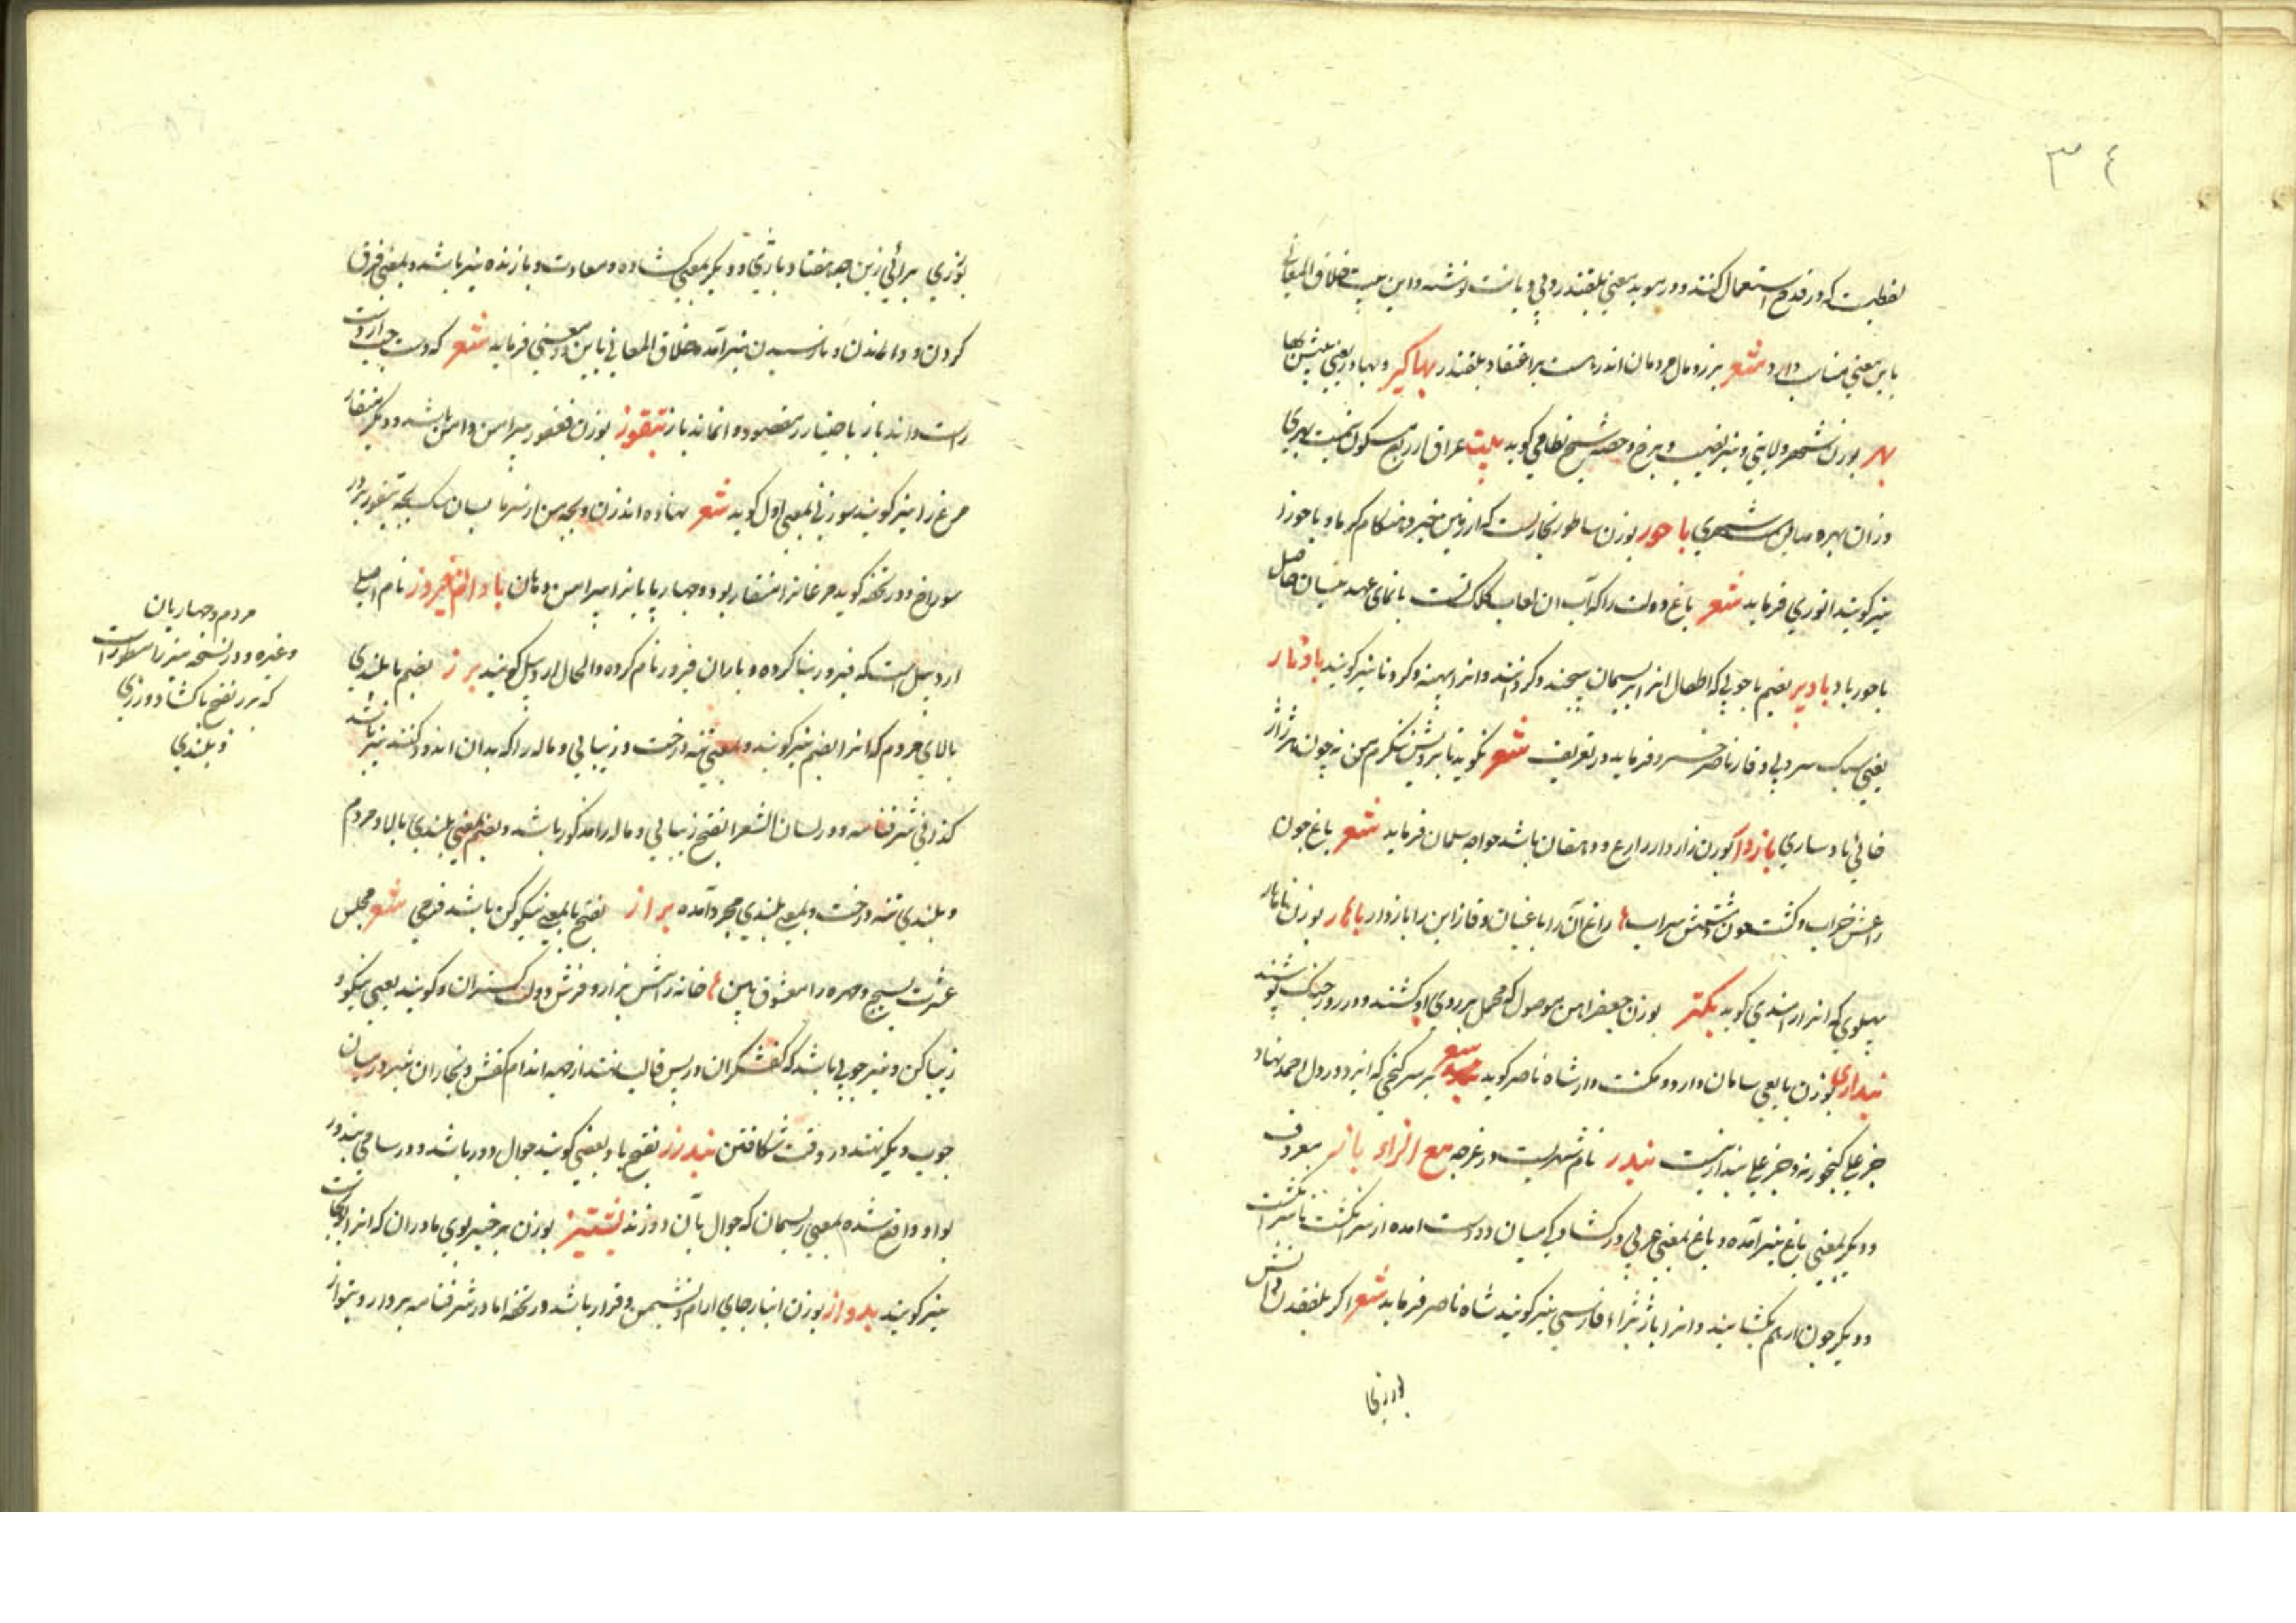 ۳۴
لفظیست که در قدیم استعمال کنند و در موید بمعنی بلقندر و بی دیانت نوشته و این بیت خلاق المعانی
باین معنی مناسب دارد شعر بزر و مال مردمان اندر است بر اعتقاد بلقندر بهاکیر و بهادر یعنی بیش بها
بهر بوزن شهر ولایتی و نیز نصیب و برخ و حصه شیخ نظامی کوید بیت عراق از ربع مسکون است بهری
وزان بهره مداین است شهری باحور بوزن ساطور بخاریست که از زمین خیزد هنکام کرما و باحورا
نیز کویند انوری فرماید شعر باغ دولت را که آب آن لعاب کلک تست با نمای عهد نیسان حاصل
باحور باد بادبر بضم با چوبی که اطفال انرا بریسمان پیچند و کردانند و انرا پهنه و کردنا نیز کویند بادسار
یعنی سبک سر و بی وقار ناصر خسرو فرماید در تعریف شعر نکوید تا برویش ننکرم من نه چون هر ژاژ
خائی بادساری بازدار بوزن زاردار زارع و دهقان باشد خواجه سلمان فرماید شعر باغ چون
راغش خراب و کشت چون دشتش سراب زاغ آن را باغبان و قاز این را بازدار باهار بوزن ناهار
پهلوی که انرا رامندی کوید بکتر بوزن جعفر اهن موصول که مخمل بر روی او کشند و در روز جنک پوشند
بنداری بوزن یا یعنی سامان دار و مکنت دار شاه ناصر کوید شعر بر سر کنجی که ایزد در دل احمد نهاد
جز علی کنجور نه و جز علی بندار نیست بندر نام شهریست در غرجه مع الزاء باز معروف
و دیکر بمعنی باغ نیز آمده و باغ بمعنی عربی در کشادکی میان دو دست امده از سر انکشت تا سر انکشت
و دیکر چون از هم بکشایند و انرا باژ بژاء فارسی نیز کویند شاه ناصر فرماید شعر اکر بلفقدن دانش
بورزی برائی زین چه هفتاد بازی و دیکر بمعنی کشاده و معاودت و بازنده نیز باشد و بمعنی فرق
کردن و واماندن و باز رسیدن نیز آمده خلاق المعانی باین دو معنی فرماید شعر که دست چپ از دست
راست داند باز باختیار ز مقصود وا نماند باز بتفوز بوزن فغفور پیرامن دهن باشد و دیکر منقار
مرغ را نیز کویند سوزنی بمعنی اول کوید شعر نهاده اند زن و بچه من از سرما بسان سک بچه بتفوز بر در
سوراخ و در تحفه کوید مرغانرا منقار بود و چهار پایانرا پیرامن دهان باذان فیروز نام اصلی
اردبیل است که فیروز بنا کرده و باذان فیروز نام کرده و الحال اردبیل کویند برز بضم با بلندی
بالای مردم که انرا بضم نیز کویند و بمعنی تنه درخت و زیبایی و ماله را که بدان اندود کنند نیز باشد
کذا فی شرفنامه و در لسان الشعرا بفتح زیبایی و ماله را مذکور باشد و بضم بمعنی بلندی بالا و مردم
و بلندی تنه درخت و بمعنی بلندی مجرد آمده براز بفتح با بمعنی نیکویی کن باشد فرخی شعر مجلس
عشرت بسیج و چهره را معشوق بین خانه دانش براز و فرش دولت کستران و کویند یعنی نیکو و
زیبا کن و نیز چوبی باشد که کفشکران در پس قالب نهند از چهه اندام کفش و نجاران نیز در میان
چوب دیکر نهند در وقت شکافتن بندرز بفتح با و بعضی کویند جوال دوز باشد و در سامی بندور
بواو واقع شده بمعنی ریسمان که جوال بآن دوزند بشتیز بوزن برخیز بوی مادران که انرا
نیز کویند بدواز بوزن انباز جای ارام و نشیمن و قرار باشد در تحفه اما در شرفنامه بدواز و پتواز
مردم و چهار پایان
وغیره و در نسخه میرزا مسطور است
که برز بفتح با کشاورزی
و بلندی
بورزی